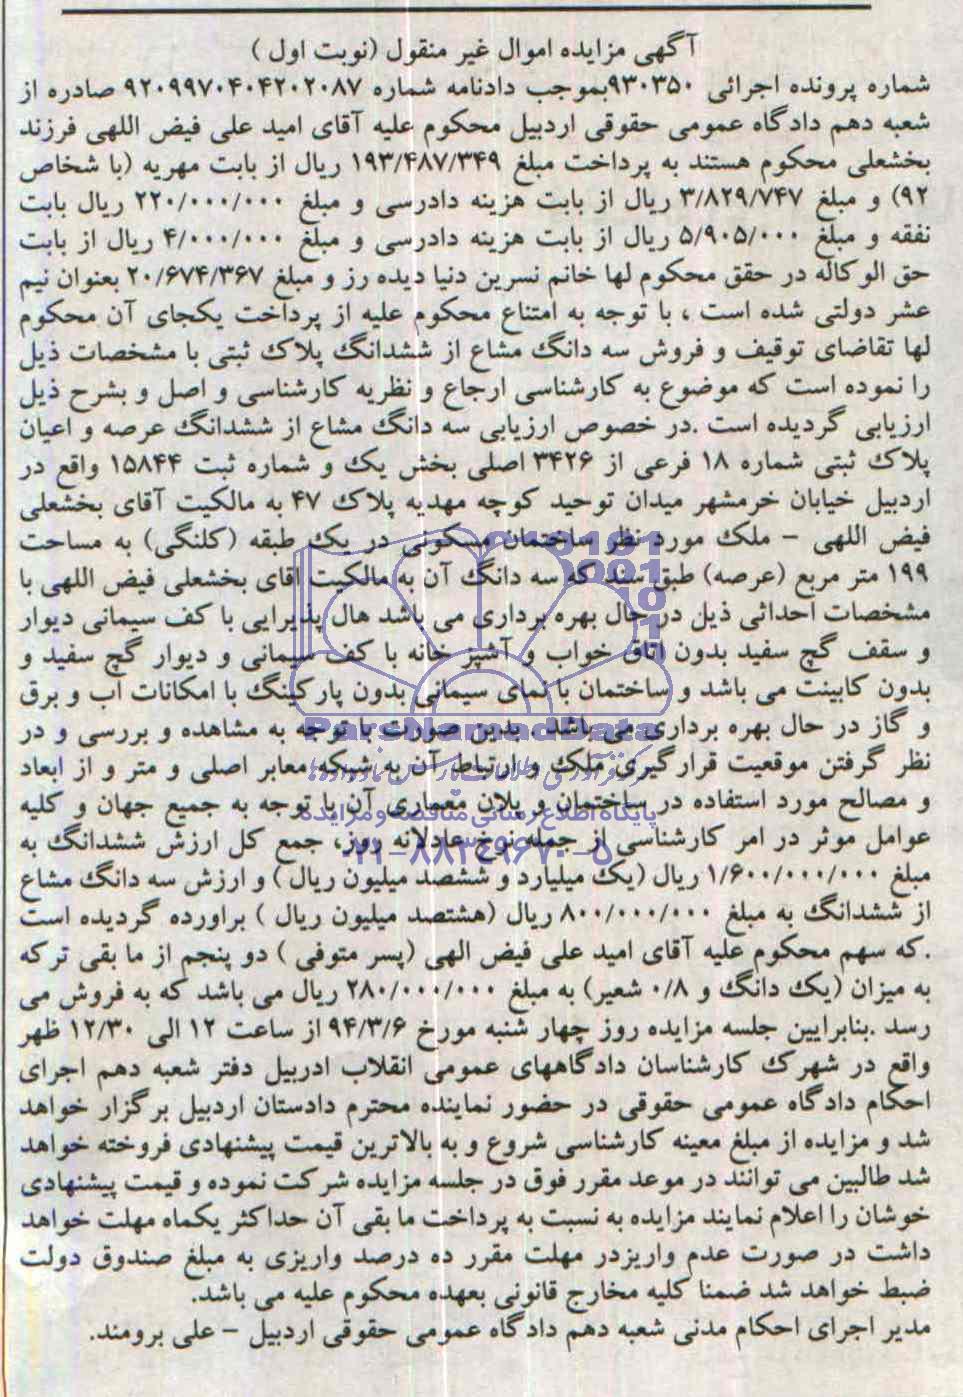 آگهی مزایده اموال غیر منقول (نوبت اول )
شماره پرونده اجرائی ۹۳۰۳۵۰بموجب دادنامه شماره ۹۲۰۹۹۷۰۴۰۴۲۰۲۰۸۷ صادره از
شعبه دهم دادگاه عمومی حقوقی اردبیل محکوم علیه آقای امید علی فیض اللهی فرزند
بخشعلی محکوم هستند به پرداخت مبلغ ۱۹۳/۴۸۷/۳۴۹ ریال از بابت مهریه (با شخاص
۹۲) و مبلغ ۳/۸۲۹/۷۴۷ ریال از بابت هزینه دادرسی و مبلغ ۲۲۰/۰۰۰/۰۰۰ ریال بابت
نفقه و مبلغ ۵/۹۰۵/۰۰۰ ریال از بابت هزینه دادرسی و مبلغ ۴/۰۰۰/۰۰۰ ریال از بابت
حق الوکاله در حقق محکوم لها خانم نسرین دنیا دیده رز و مبلغ ۲۰/۶۷۴/۳۶۷ بعنوان نیم
عشر دولتی شده است ، با توجه به امتناع محکوم علیه از پرداخت یکجای آن محکوم
لها تقاضای توقیف و فروش سه دانگ مشاع از ششدانگ پلاک ثبتی با مشخصات ذیل
را نموده است که موضوع به کارشناسی ارجاع و نظریه کارشناسی و اصل و بشرح ذیل
ارزیابی گردیده است .در خصوص ارزیابی سه دانگ مشاع از ششدانگ عرصه و اعیان
پلاک ثبتی شماره ۱۸ فرعی از ۳۴۲۶ اصلی بخش یک و شماره ثبت ۱۵۸۴۴ واقع در
اردبیل خیابان خرمشهر میدان توحید کوچه مهدیه پلاک ۴۷ به مالکیت آقای بخشعلی
فیض اللهی – ملک مورد نظر ساختمان مسکونی در یک طبقه (کلنگی) به مساحت
۱۹۹ متر مربع (عرصه) طبق سند که سه دانگ آن به مالکیت اقای بخشعلی فیض اللهی با
مشخصات احداثی ذیل در حال بهره برداری می باشد هال پذیرایی با کف سیمانی دیوار
و سقف گچ سفید بدون اتاق خواب و آشپز خانه با کف سیمانی و دیوار گچ سفید و
بدون کابینت می باشد و ساختمان با نمای سیمانی بدون پارکینگ با امکانات آب و برق
و گاز در حال بهره برداری می باشد . بدین صورت با توجه به مشاهده و بررسی و در
نظر گرفتن موقعیت قرارگیری ملک و ارتباط آن به شبکه معابر اصلی و متر و از ابعاد
و مصالح مورد استفاده در ساختمان و پلان معماری آن با توجه به جمیع جهان و کلیه
عوامل موثر در امر کارشناسی از جمله نرخ عادلانه روز، جمع کل ارزش ششدانگ به
مبلغ ۱/۶۰۰/۰۰۰/۰۰۰ ریال (یک میلیارد و ششصد میلیون ریال ) و ارزش سه دانگ مشاع
از ششدانگ به مبلغ ۸۰۰/۰۰۰/۰۰۰ ریال (هشتصد میلیون ریال ) براورده گردیده است
.که سهم محکوم علیه آقای امید علی فیض الهی (پسر متوفی ) دو پنجم از ما بقی ترکه
به میزان (یک دانگ و ۰/۸ شعیر) به مبلغ ۲۸۰/۰۰۰/۰۰۰ ریال می باشد که به فروش می
رسد .بنابرایین جلسه مزایده روز چهار شنبه مورخ ۹۴/۳/۶ از ساعت ۱۲ الی ۱۲/۳۰ ظهر
واقع در شهرک کارشناسان دادگاههای عمومی انقلاب ادربیل دفتر شعبه دهم اجرای
احکام دادگاه عمومی حقوقی در حضور نماینده محترم دادستان اردبیل برگزار خواهد
شد و مزایده از مبلغ معینه کارشناسی شروع و به بالاترین قیمت پیشنهادی فروخته خواهد
شد طالبین می توانند در موعد مقرر فوق در جلسه مزایده شرکت نموده و قیمت پیشنهادی
خوشان را اعلام نمایند مزایده به نسبت به پرداخت ما بقی آن حداکثر یکماه مهلت خواهد
داشت در صورت عدم واریزدر مهلت مقرر ده درصد واریزی به مبلغ صندوق دولت
ضبط خواهد شد ضمنا کلیه مخارج قانونی بعهده محکوم علیه می باشد.
مدیر اجرای احکام مدنی شعبه دهم دادگاه عمومی حقوقی اردبیل – علی برومند.
ParsNamadData
پایگاه اطلاع رسانی مناقصه و مزایده
۰۲۱-۸۸۳۴۹۶۷۰-۵